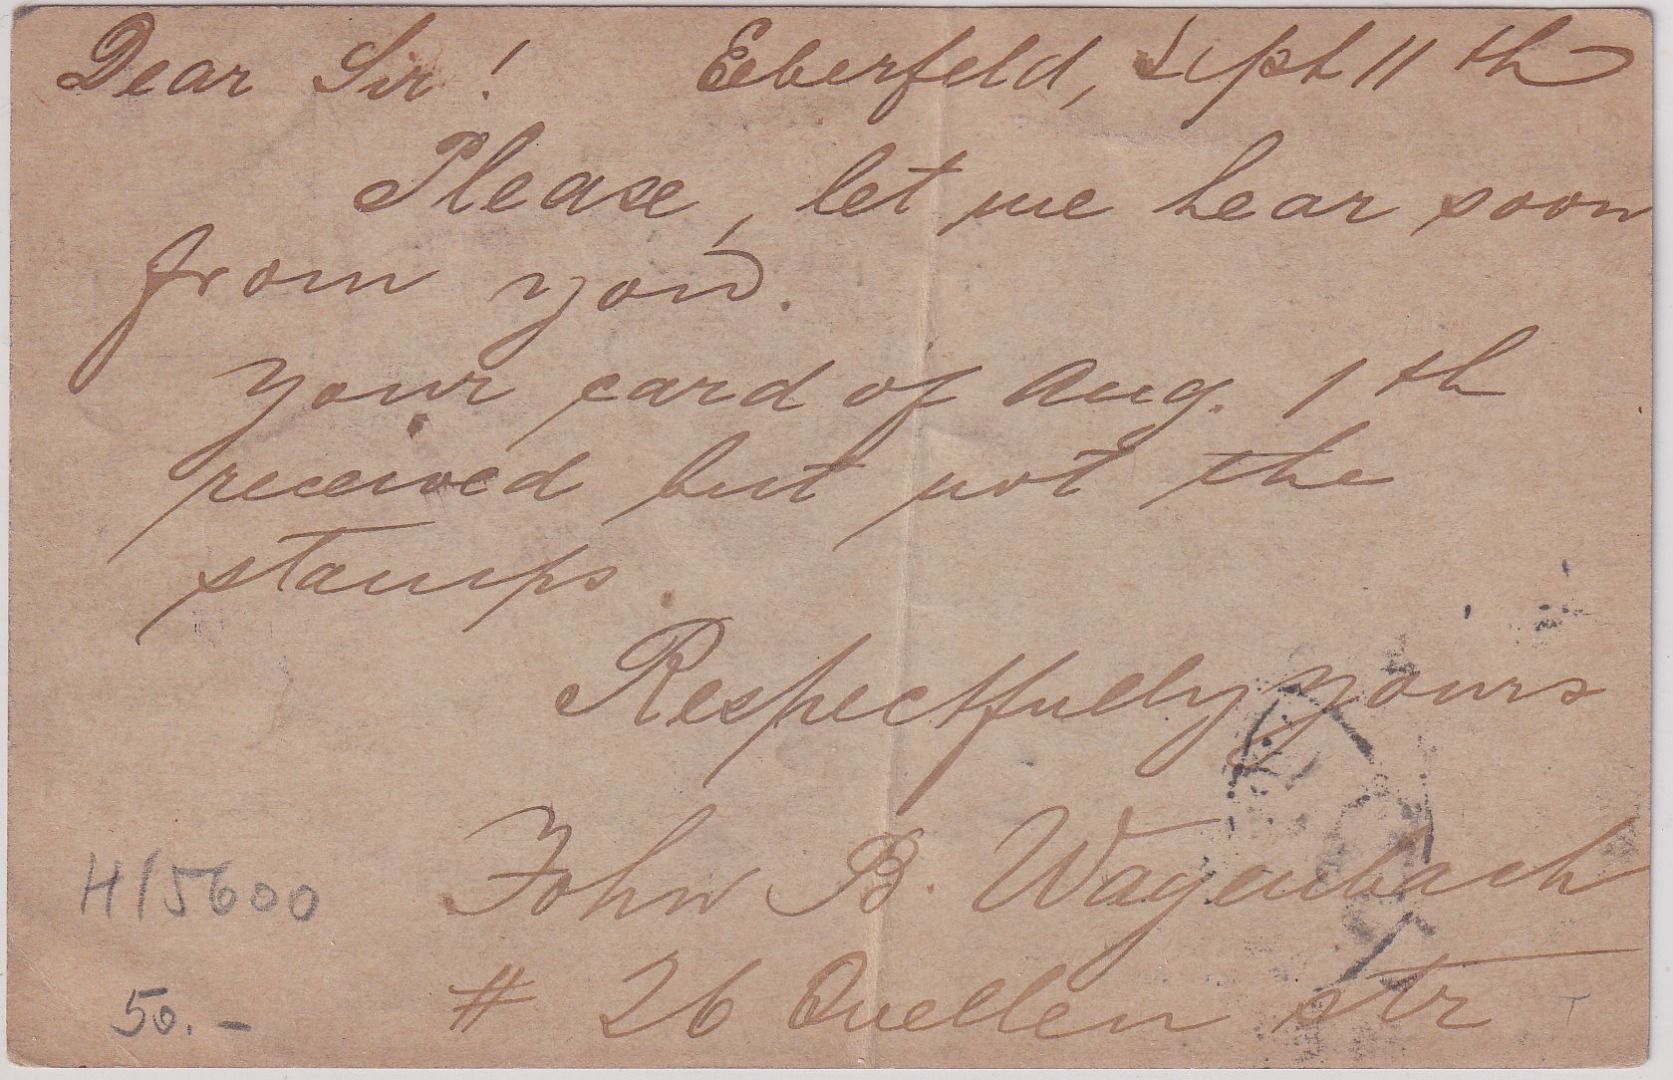 Dear Sir! Elberfeld, Sept 11th
Please, let me hear soon
from you.
Your card of Aug. 1th
received but not the
stamps.
Respectfully yours
John B. Wagenbach
# 26 Quellen str
H15600
50.-